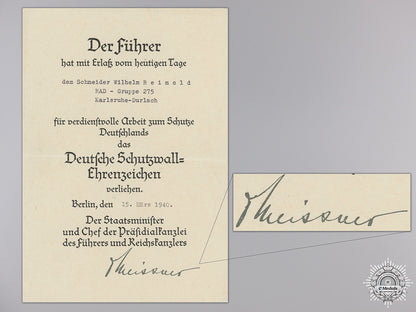 Der Führer
hat mit Erlaß vom heutigen Tage
dem Schneider Wilhelm R e i n o l d
RAD - Gruppe 275
Karlsruhe-Durlach
für verdienstvolle Arbeit zum Schutze
Deutschlands
das
Deutsche Schutzwall-
Ehrenzeichen
verliehen.
Berlin, den 15. März 1940.
Der Staatsminister
und Chef der Präsidialkanzlei
des Führers und Reichskanzlers
Meissner
Meissner
eMedals